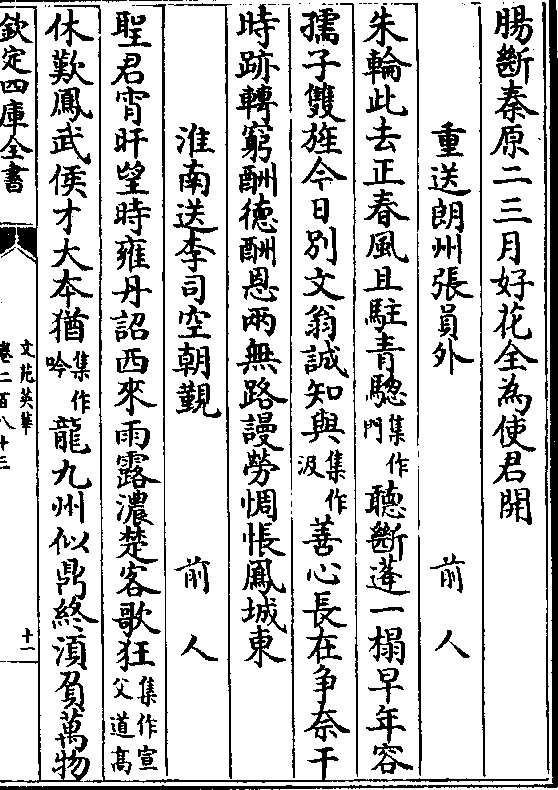 腸斷秦原二三月好花全為使君開
重送朗州張員外 前人
朱輪此去正春風且駐青驄集作門聽斷蓬一榻早年容
孺子雙旌今日別文翁誠知與集作汲善心長在争奈干
時跡轉窮酬德酬恩兩無路謾勞惆悵鳳城東
淮南送李司空朝覲 前人
聖君宵旰望時雍丹詔西來雨露濃楚客歌狂集作宣父道高
休歎鳳武侯才大本猶集作吟龍九州似鼎終須負萬物
欽定四庫全書
文苑英華
卷二百八十三
十一